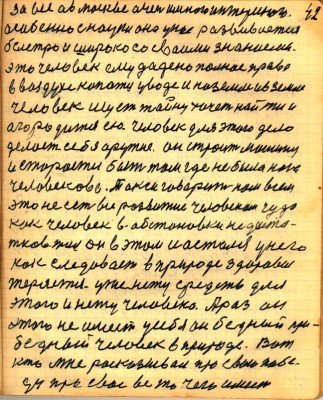 за все
особенно науки она у нас развивается
быстро и широко со своими знанием.
это человек ему дадено полное право
в воздухе копоту у воде и на земле и в земле
человек ищет тайну хочет найти и
человек для этого дело
делает себя другие. он строит машину
и старается быть там где не была нога
человекова. Так и говорить нам всем
это не есть развитие человеком чудо
как человек в абстоновки недоста-
тков жил он в этом и астался у него
как следовает в природе здоровия
теряется. уже нету средств для
этого и нету человека. А раз он
этого не имеет у себя он бедный пре-
бедный человек в природе. Вот
кто мне росказывал про свою побе-
ду про свое
42